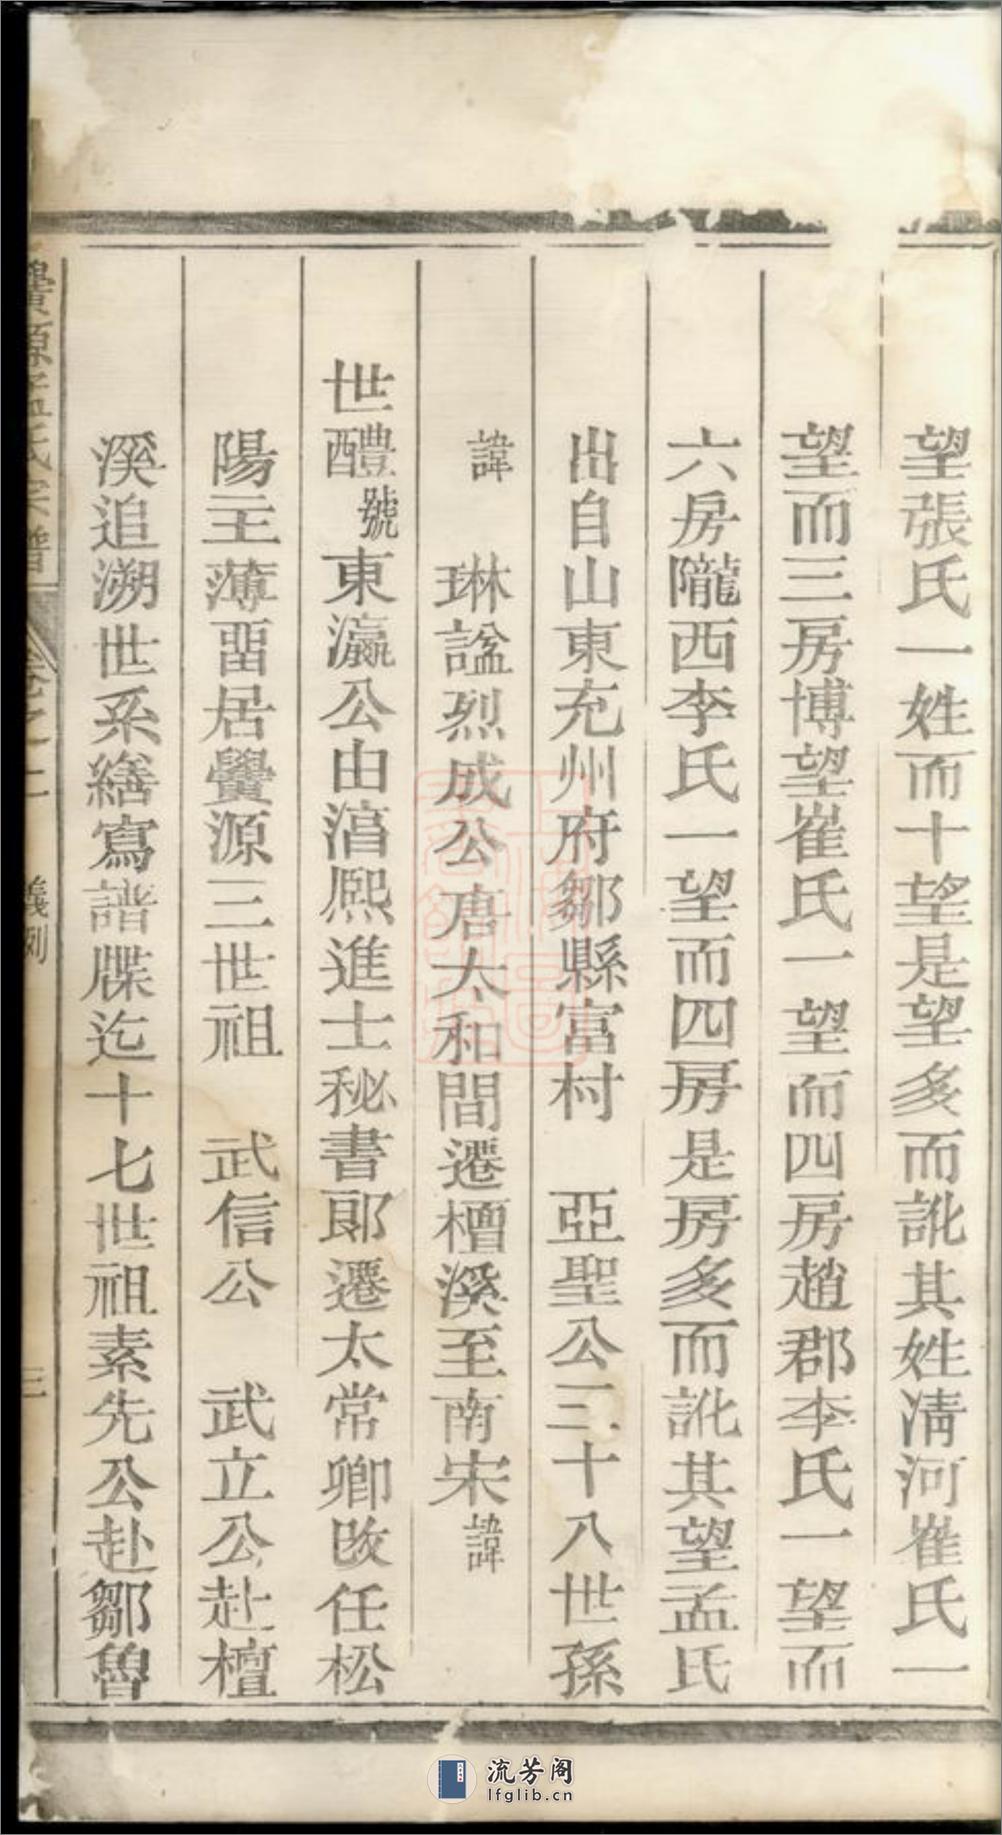 望張氏一姓而十望是望多而訛其姓淸河崔氏一
望而三房博望崔氏一望而四房趙郡李氏一望而
六房隴西李氏一望而四房是房多而訛其望孟氏
出自山東充州府鄒縣富村　亞聖公三十八世孫
諱　琳諡烈成公唐太和間遷檀溪至南宋諱
世醴號東瀛公由淯熈進士秘書郞遷太常卿改任松
陽主薄畱居㶏源三世祖　武信公　武立公赴檀
溪追溯世系繕寫譜牒迄十七世祖素先公赴鄒魯
源孟氏宗譜　卷之一　義例　三
流芳阁
lfglib.cn